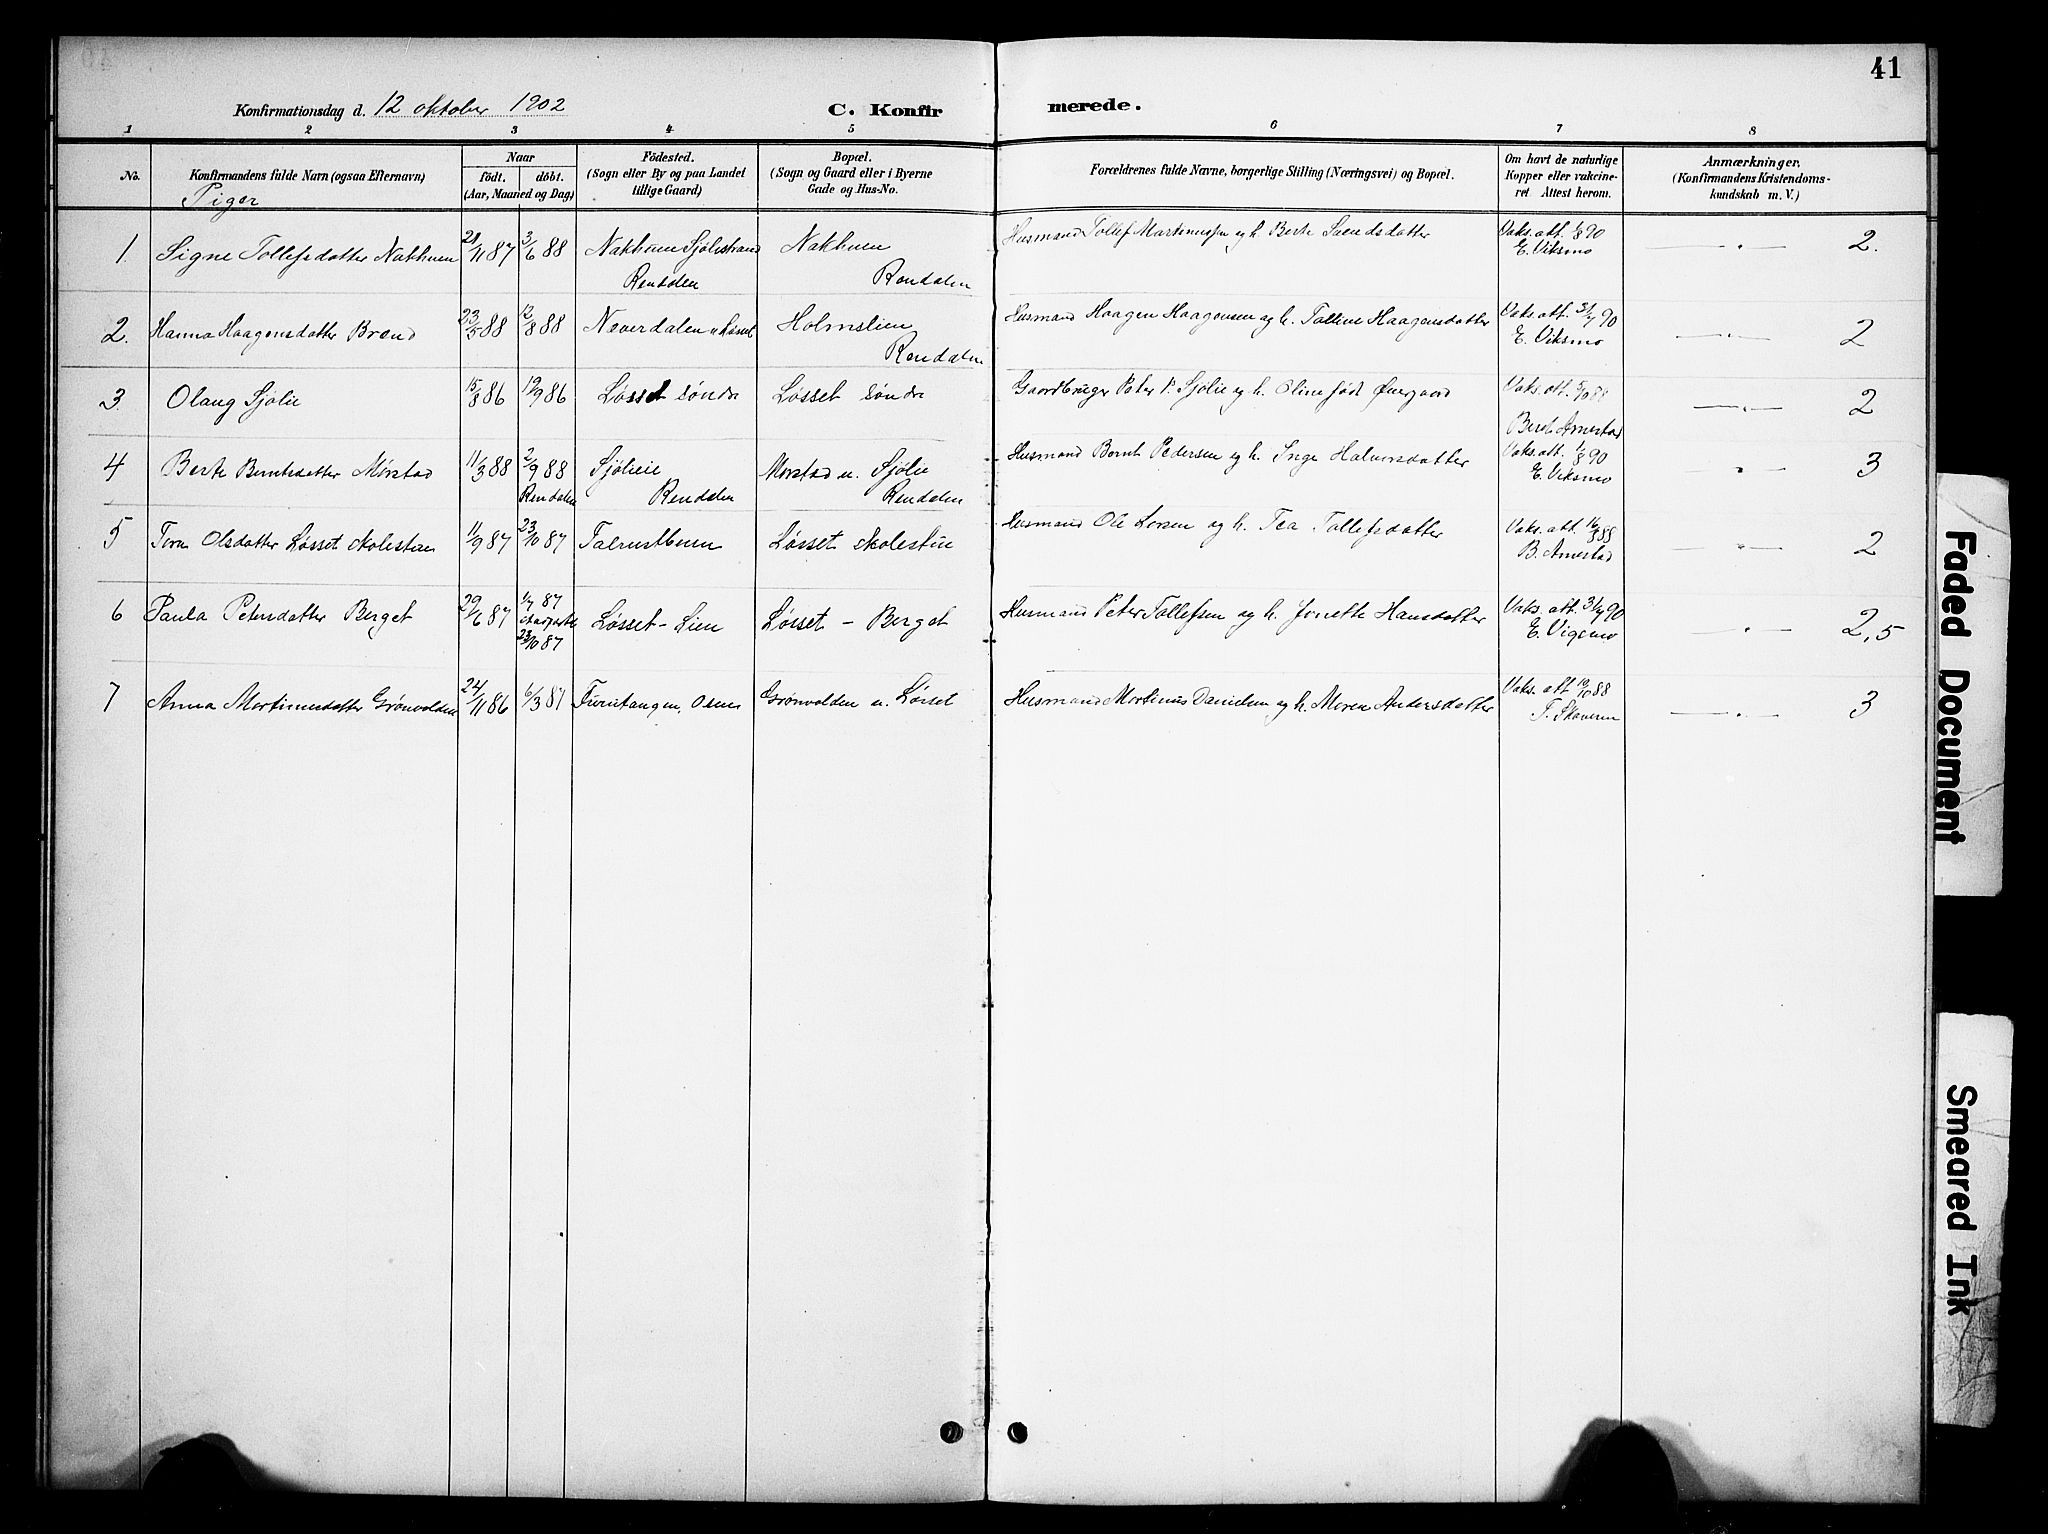 41
Konfirmationsdag d. 12 oktober 1902 C. Konfirmerede.
1 2 3 4 5 6 7 8
No.
Konfirmandens fulde Navn (ogsaa Efternavn)
Piger
Naar
födt. döbt.
(Aar, Maaned og Dag)
Födested.
(Sogn eller By og paa Landet
tillige Gaard)
Bopæl.
(Sogn og Gaard eller i Byerne
Gade og Hus-No.
Forældrenes fulde Navne, borgerlige Stilling (Næringsvei) og Bopæl.
Om havt de naturlige
Kopper eller vakcine-
ret Attest herom.
Anmærkninger.
(Konfirmandens Kristendoms-
kundskab m. V.)
1. Signe Tollefsdatter Nakhuen 21/11 87 3/6 88 Nakhuen Sjölistrand Nakhuen Husmand Tollef Martinussen og h. Berte Svendsdatter Vaks. att. 1/8 90 — " — 2.
Rendalen Rendalen E. Viksmo
2. Hanna Haagensdatter Brænd 23/5 88 12/8 88 Næverdalen u. Løsset Holmslien Husmand Haagen Haagensen og h. Talline Haagensdatter Vaks. att. 31/7 90 — " — 2
Rendalen E. Viksmo
3. Olaug Sjølie 15/8 86 19/9 86 Løsset søndre Løsset søndre Gaardbruger Peter P. Sjølie og h. Oline født Øvergaard Vaks. att. 5/10 88 — " — 2
Bersv. Arnestad
4 Berte Berntsdatter Mørstad 11/3 88 2/9 88 Sjølieie Mørstad u. Sjølie Husmand Bernt Pedersen og h. Inge Halvorsdatter Vaks. att. 1/8 90 — " — 3
Rendalen Rendalen Rendalen E. Viksmo
5 Tora Olsdatter Løsset skolestue 11/9 87 23/10 87 Løsset skolestue Husmand Ole Larsen og h. Tea Tollefsdatter Vaks. att. 88 — " — 2
B. Arnestad
6 Paula Petersdatter Berget 29/6 87 1/7 87 Løsset - Lien Løsset - Berget Husmand Peter Tollefsen og h. Jonette Hansdatter Vaks. att. 31/7 90 — " — 2,5
23/10 87 E. Vigsmo
7 Anna Martinusdatter Grønvolden 24/11 86 6/3 87 Furutangen, Osen Grønvolden u. Løsset Husmand Martinus Danielsen og h. Maren Andersdatter Vaks. att. 19/10 88 — " — 3
T. Skaveren
Faded Document
Smeared Ink